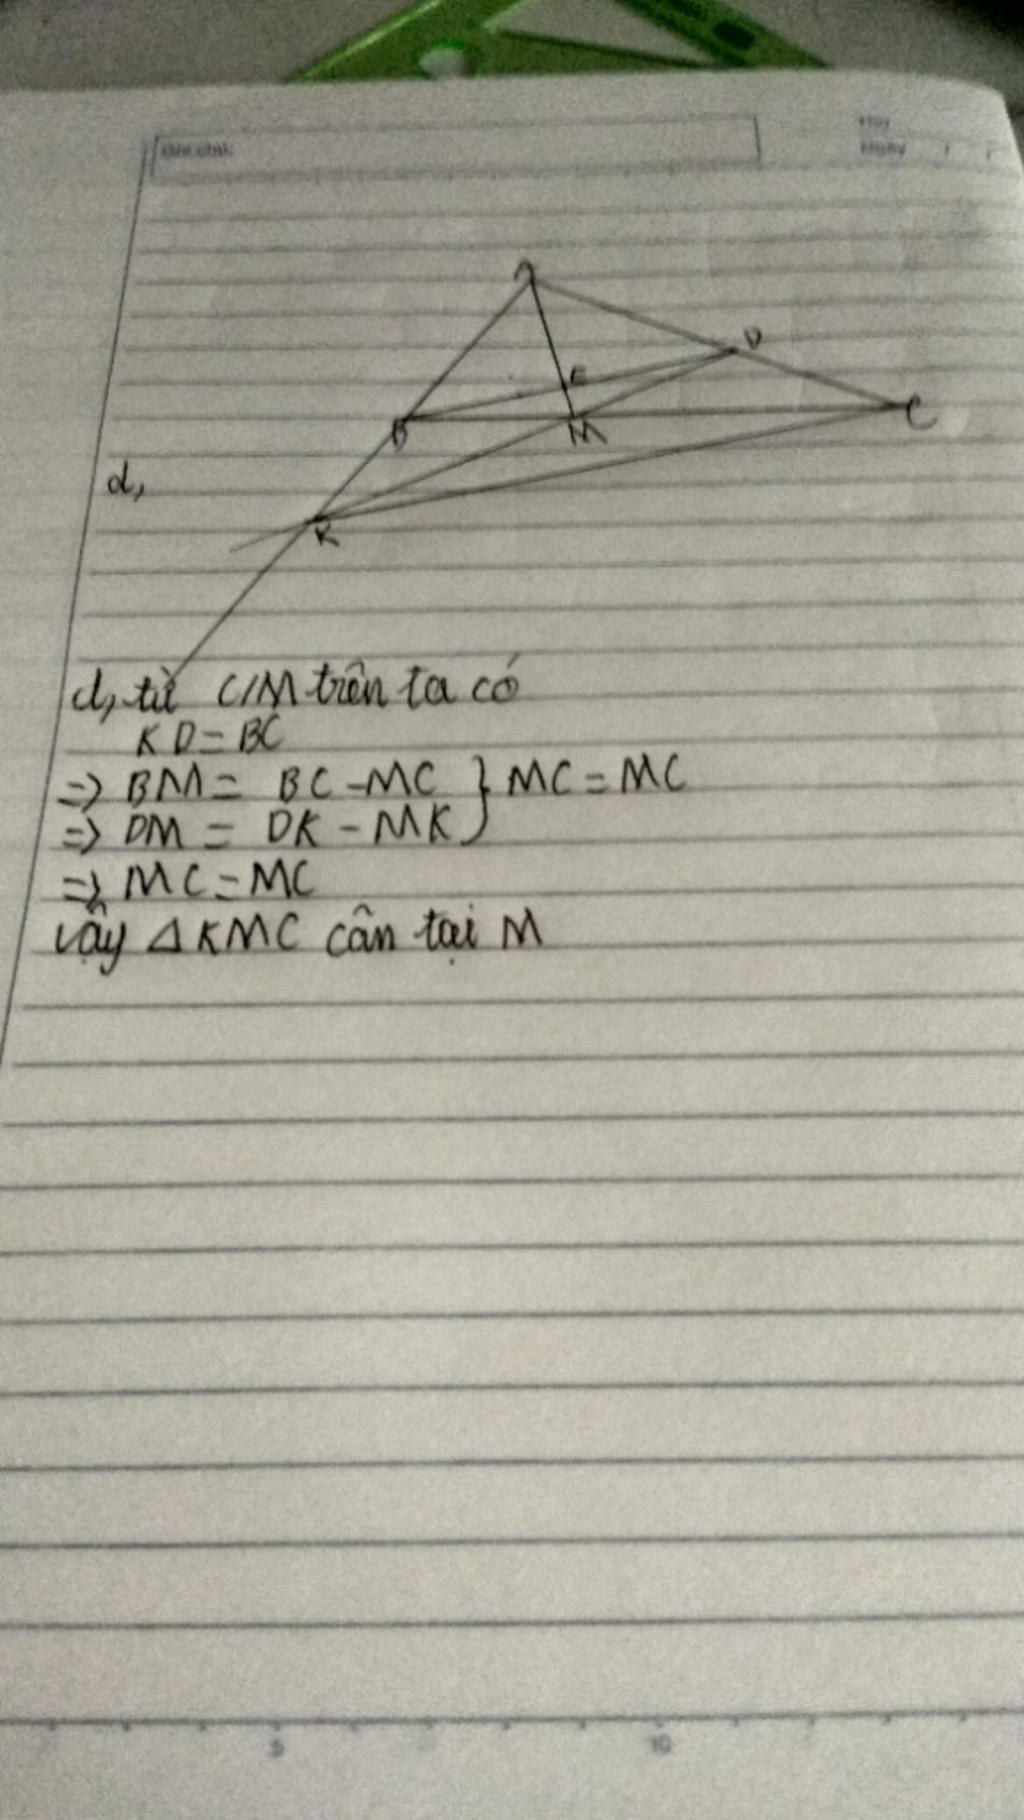 Ghi chú:
Thứ
Ngày / /
A
D
E
B
M
C
d,
K
d, từ C/M trên ta có
KD = BC
=> BM = BC - MC } MC = MC
=> DM = DK - MK
=> MC = MC
vậy Δ KMC cân tại M
5 10